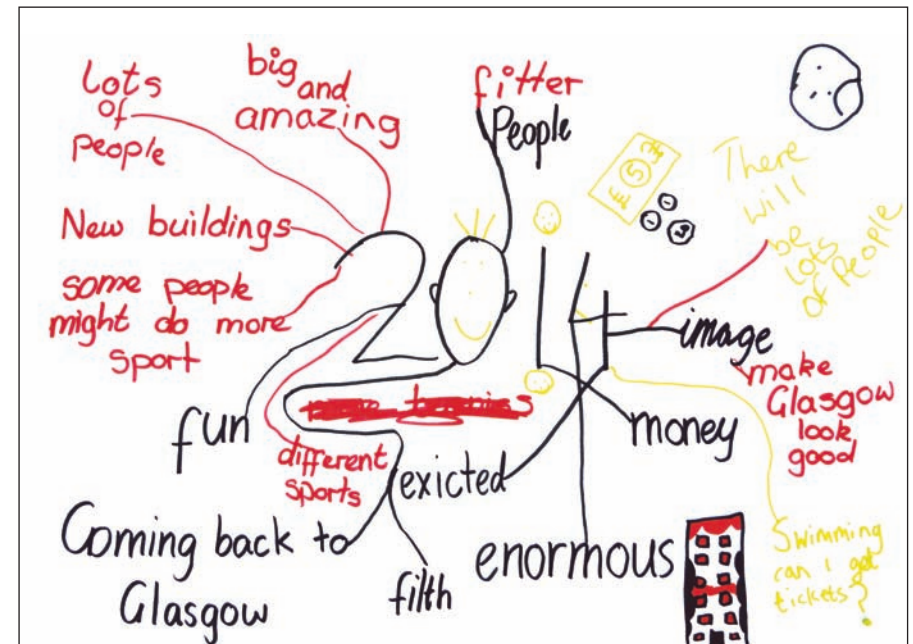 lots
of
people
big
and
amazing
fitter
People
£5
There
will
be
lots
of People
New buildings
some people
might do more
sport
2014
image
make
Glasgow
look
good
fun
different
sports
exicted
money
Coming back to
Glasgow
filth
enormous
Swimming
can I get
tickets?